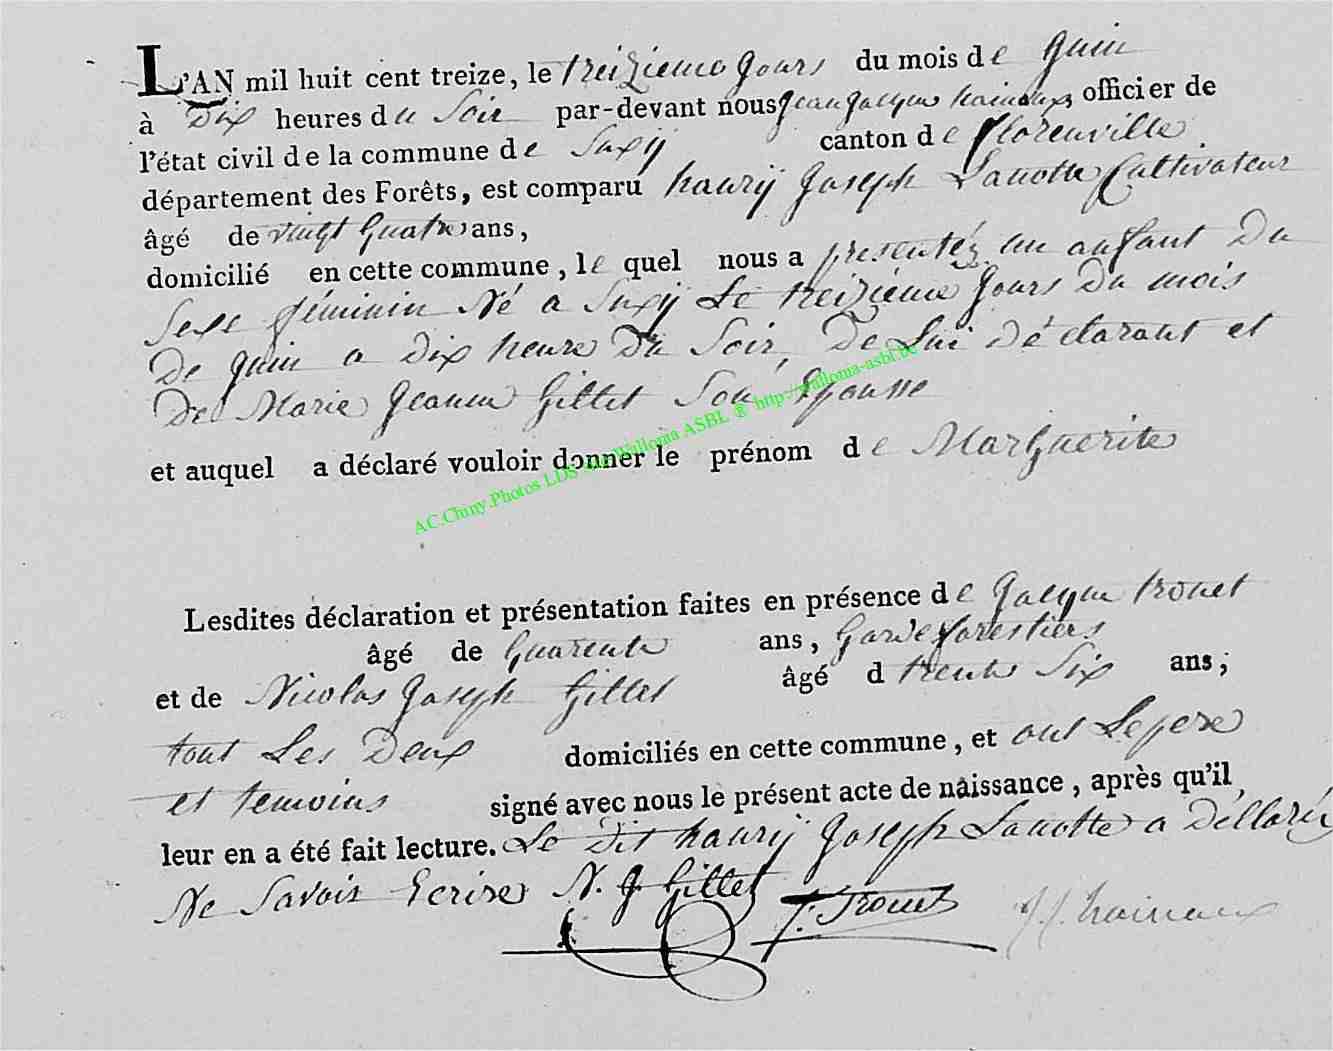 L'AN mil huit cent treize, le treizieme Jours du mois de Juin
à Dix heures du Soir par-devant nous Jean Jacque hainaux officier de
l'état civil de la commune de Suxÿ canton de florenville
département des Forêts, est comparu haurÿ Joseph Lanotte Cultivateur
âgé de vingt Quatre ans,
domicilié en cette commune, le quel nous a presentéz un anfant Du
Sexe féminin Né a Suxÿ Le treizieme Jours Du mois
De Juin a Dix heure Du Soir, De Lui Déclarant et
De Marie Jeanne Gillet Son Epousse
et auquel a déclaré vouloir donner le prénom de Marguerite
AC.Chiny.Photos LDS via Wallonia ASBL ® http://wallonia-asbl.be
Lesdites déclaration et présentation faites en présence de Jacque trouet
âgé de Quarente ans, Garde forestiers
et de Nicolas Joseph Gillet âgé d trente Six ans;
tout Les Deux domiciliés en cette commune, et ont Le pere
et temoins signé avec nous le présent acte de naissance, après qu'il
leur en a été fait lecture. Le Dit haurÿ Joseph Lanotte a Déllaréz
Ne Savoir Ecrire N. J. Gillet J. Trouet J J hainaux